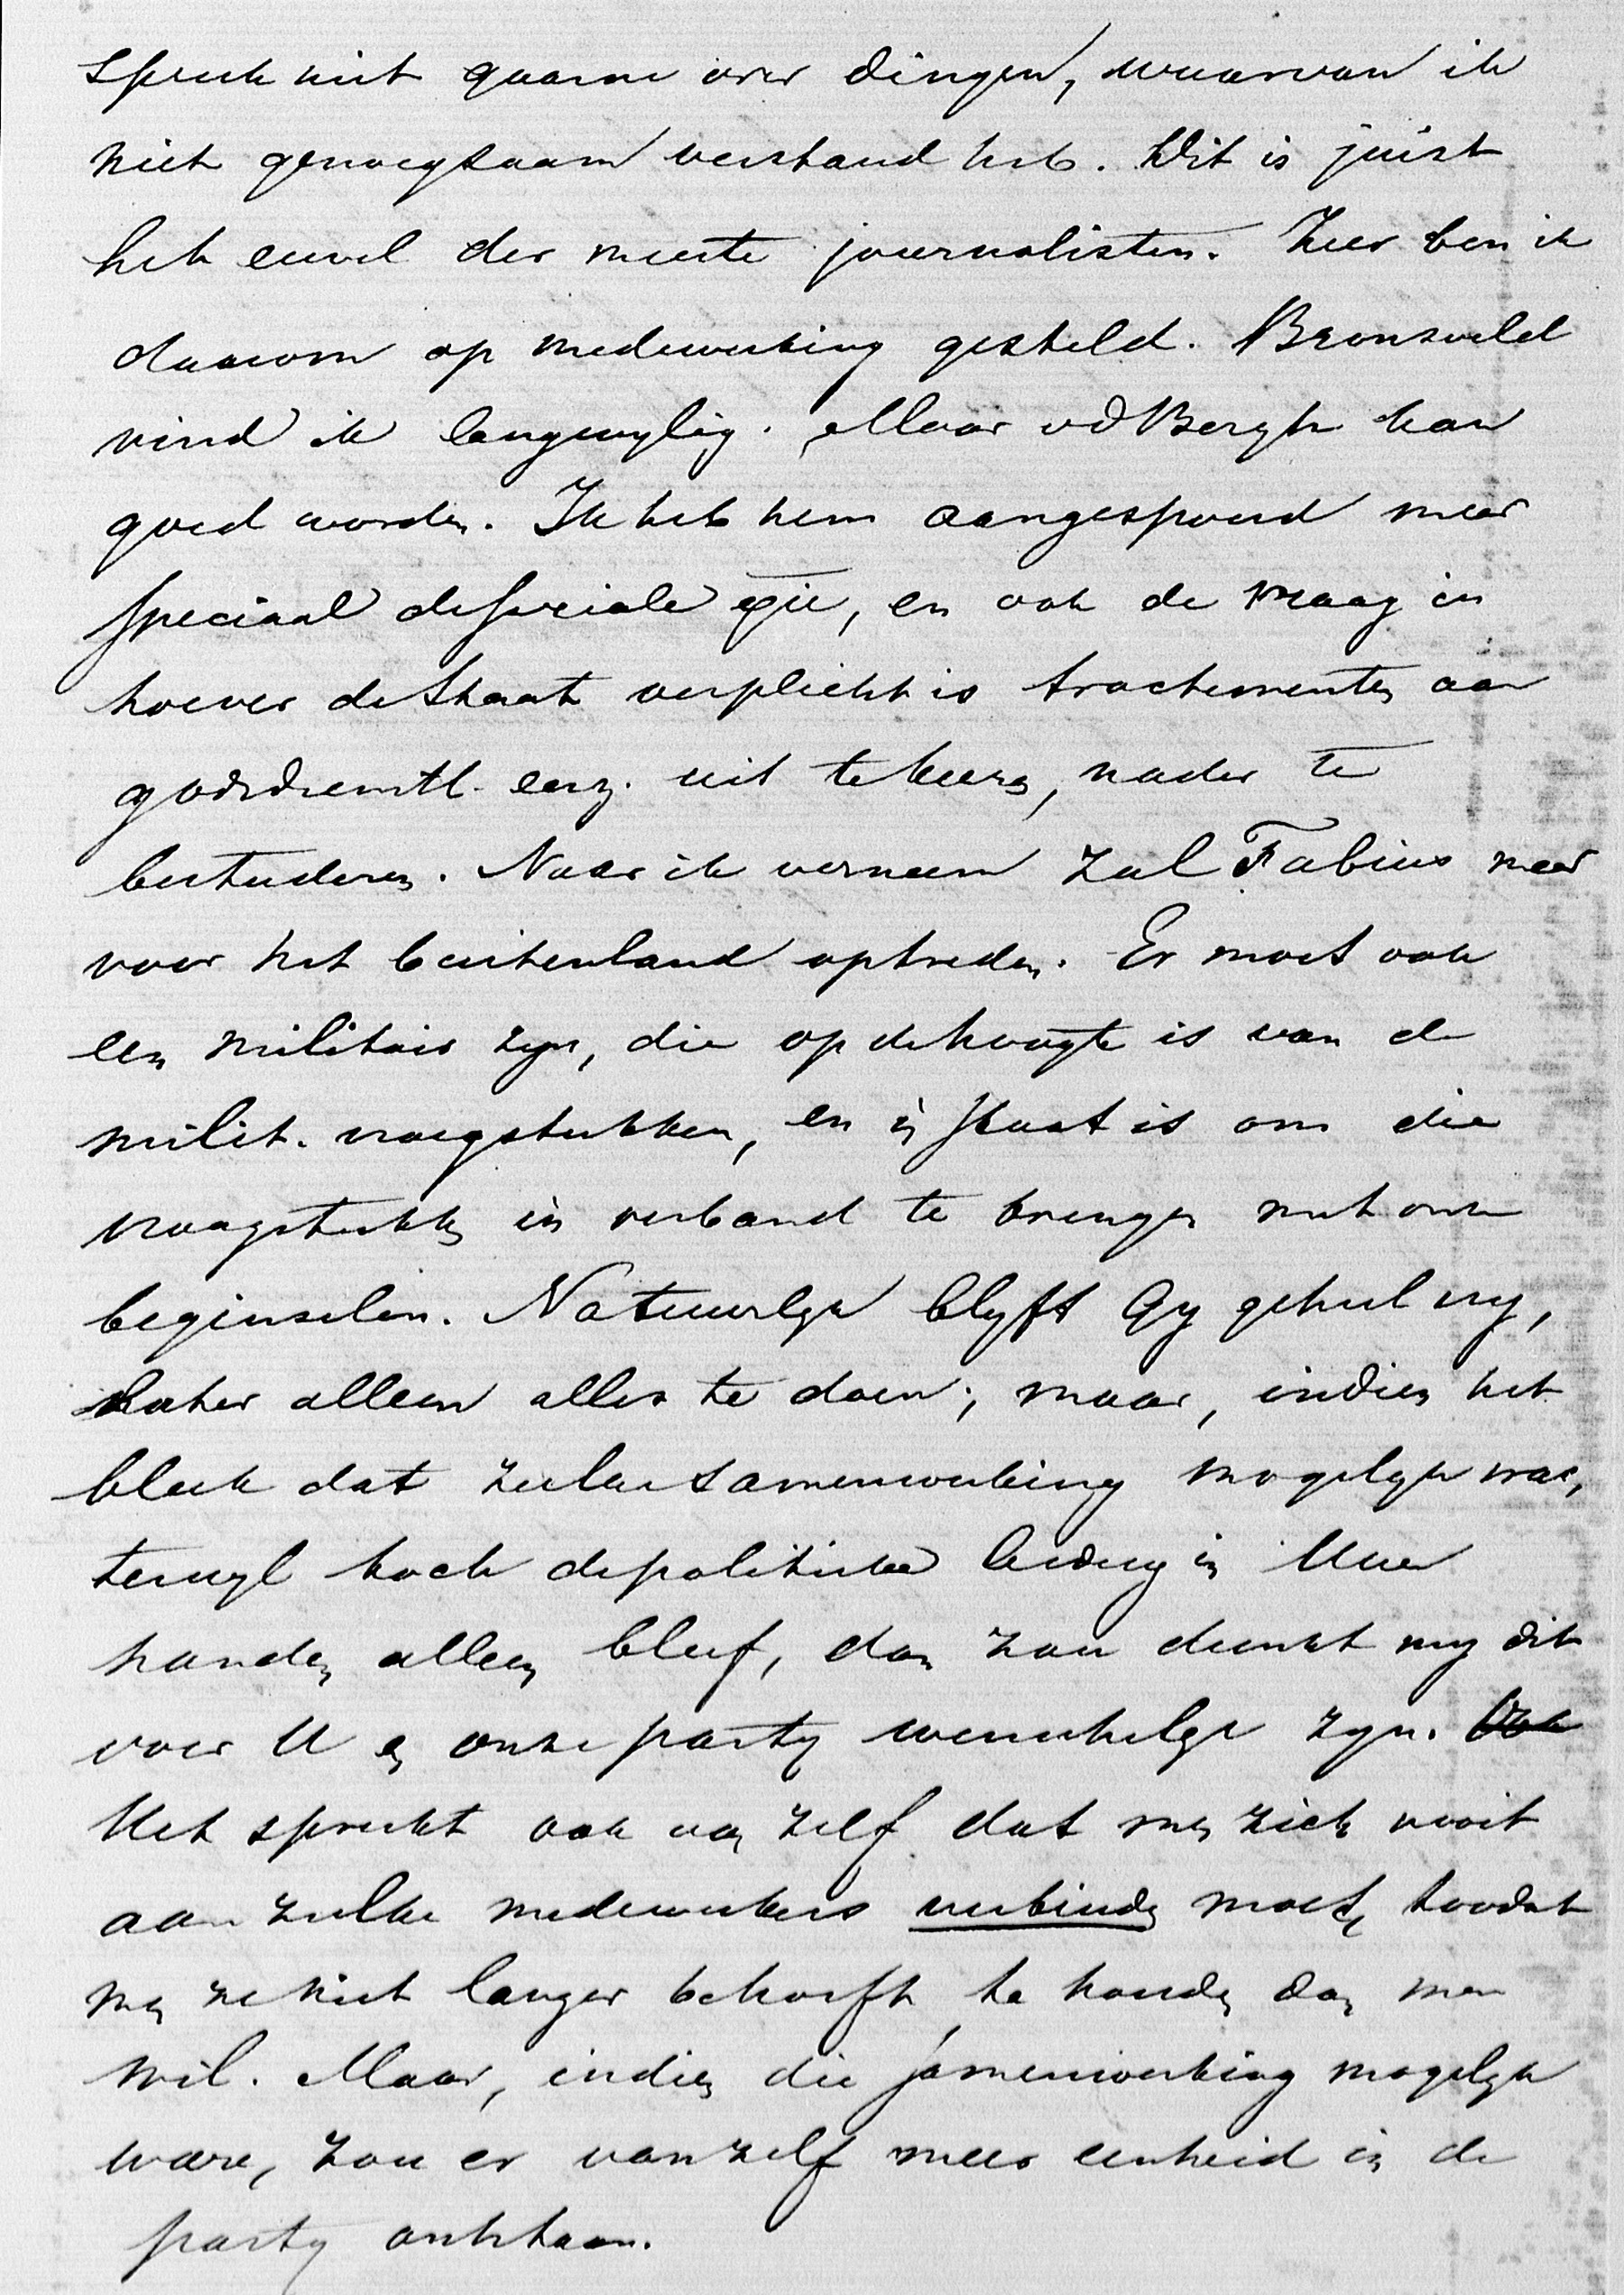 spreek niet gaarne over dingen, waarvan ik
niet genoegzaam verstand heb. Dit is juist
het euvel der meeste journalisten. Zeer ben ik
daarom op medewerking gesteld. Bronsveld
vind ik langwylig. Maar vd Bergh kan
goed worden. Ik heb hem aangespoord meer
speciaal de sociale qu̅e, en ook de vraag in
hoever de Staat verplicht is tractementen aan
godsdienstl. eerz. uit te keeren, nader te
bestuderen. Naar ik verneem zal Fabius meer
voor het buitenland optreden. Er moet ook
een militair zyn, die op de hoogte is van de
milit. vraagstukken, en in staat is om die
vraagstukken in verband te brengen met onze
beginselen. Natuurlyk blyft Gy geheel vry,
liever alleen alles te doen; maar, indien het
bleek dat zulke samenwerking mogelyk was,
terwyl toch de politieke leiding in Uwe
handen alleen bleef, dan zou dunkt my dit
voor U en onze party wenschelyk zyn.
Het spreekt ook van zelf dat men zich nooit
aan zulke medewerkers verbinden moet, zoodat
men ze niet langer behoeft te houden dan men
wil. Maar, indien die samenwerking mogelyk
ware, zou er vanzelf meer eenheid in de
party ontstaan.